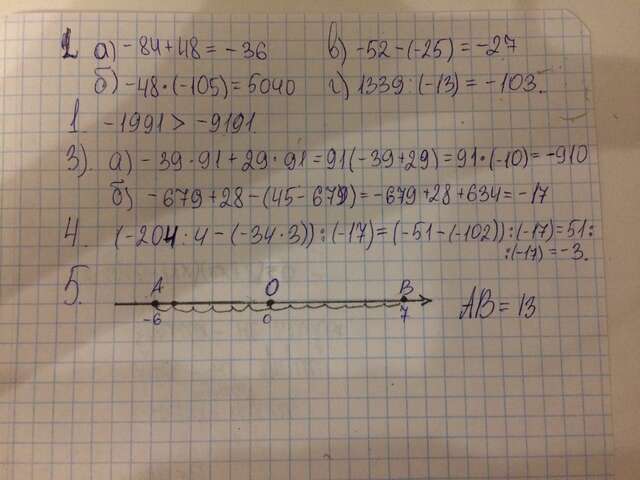 2. а) -84+48 = -36 в) -52-(-25) = -27
б) -48·(-105) = 5040 г) 1339:(-13) = -103.
1. -1991 > -9191.
3). а) -39·91+29·91 = 91(-39+29) = 91·(-10) = -910
б) -679+28-(45-679) = -679+28+634 = -17
4. (-204:4-(-34·3)):(-17) = (-51-(-102)):(-17) = 51:
:(-17) = -3.
5. A O B AB = 13
-6 0 7